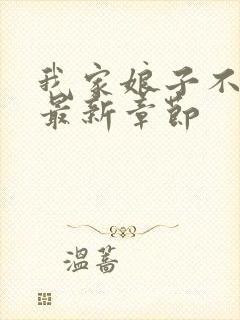 我家娘子不
最新章节
温蒿